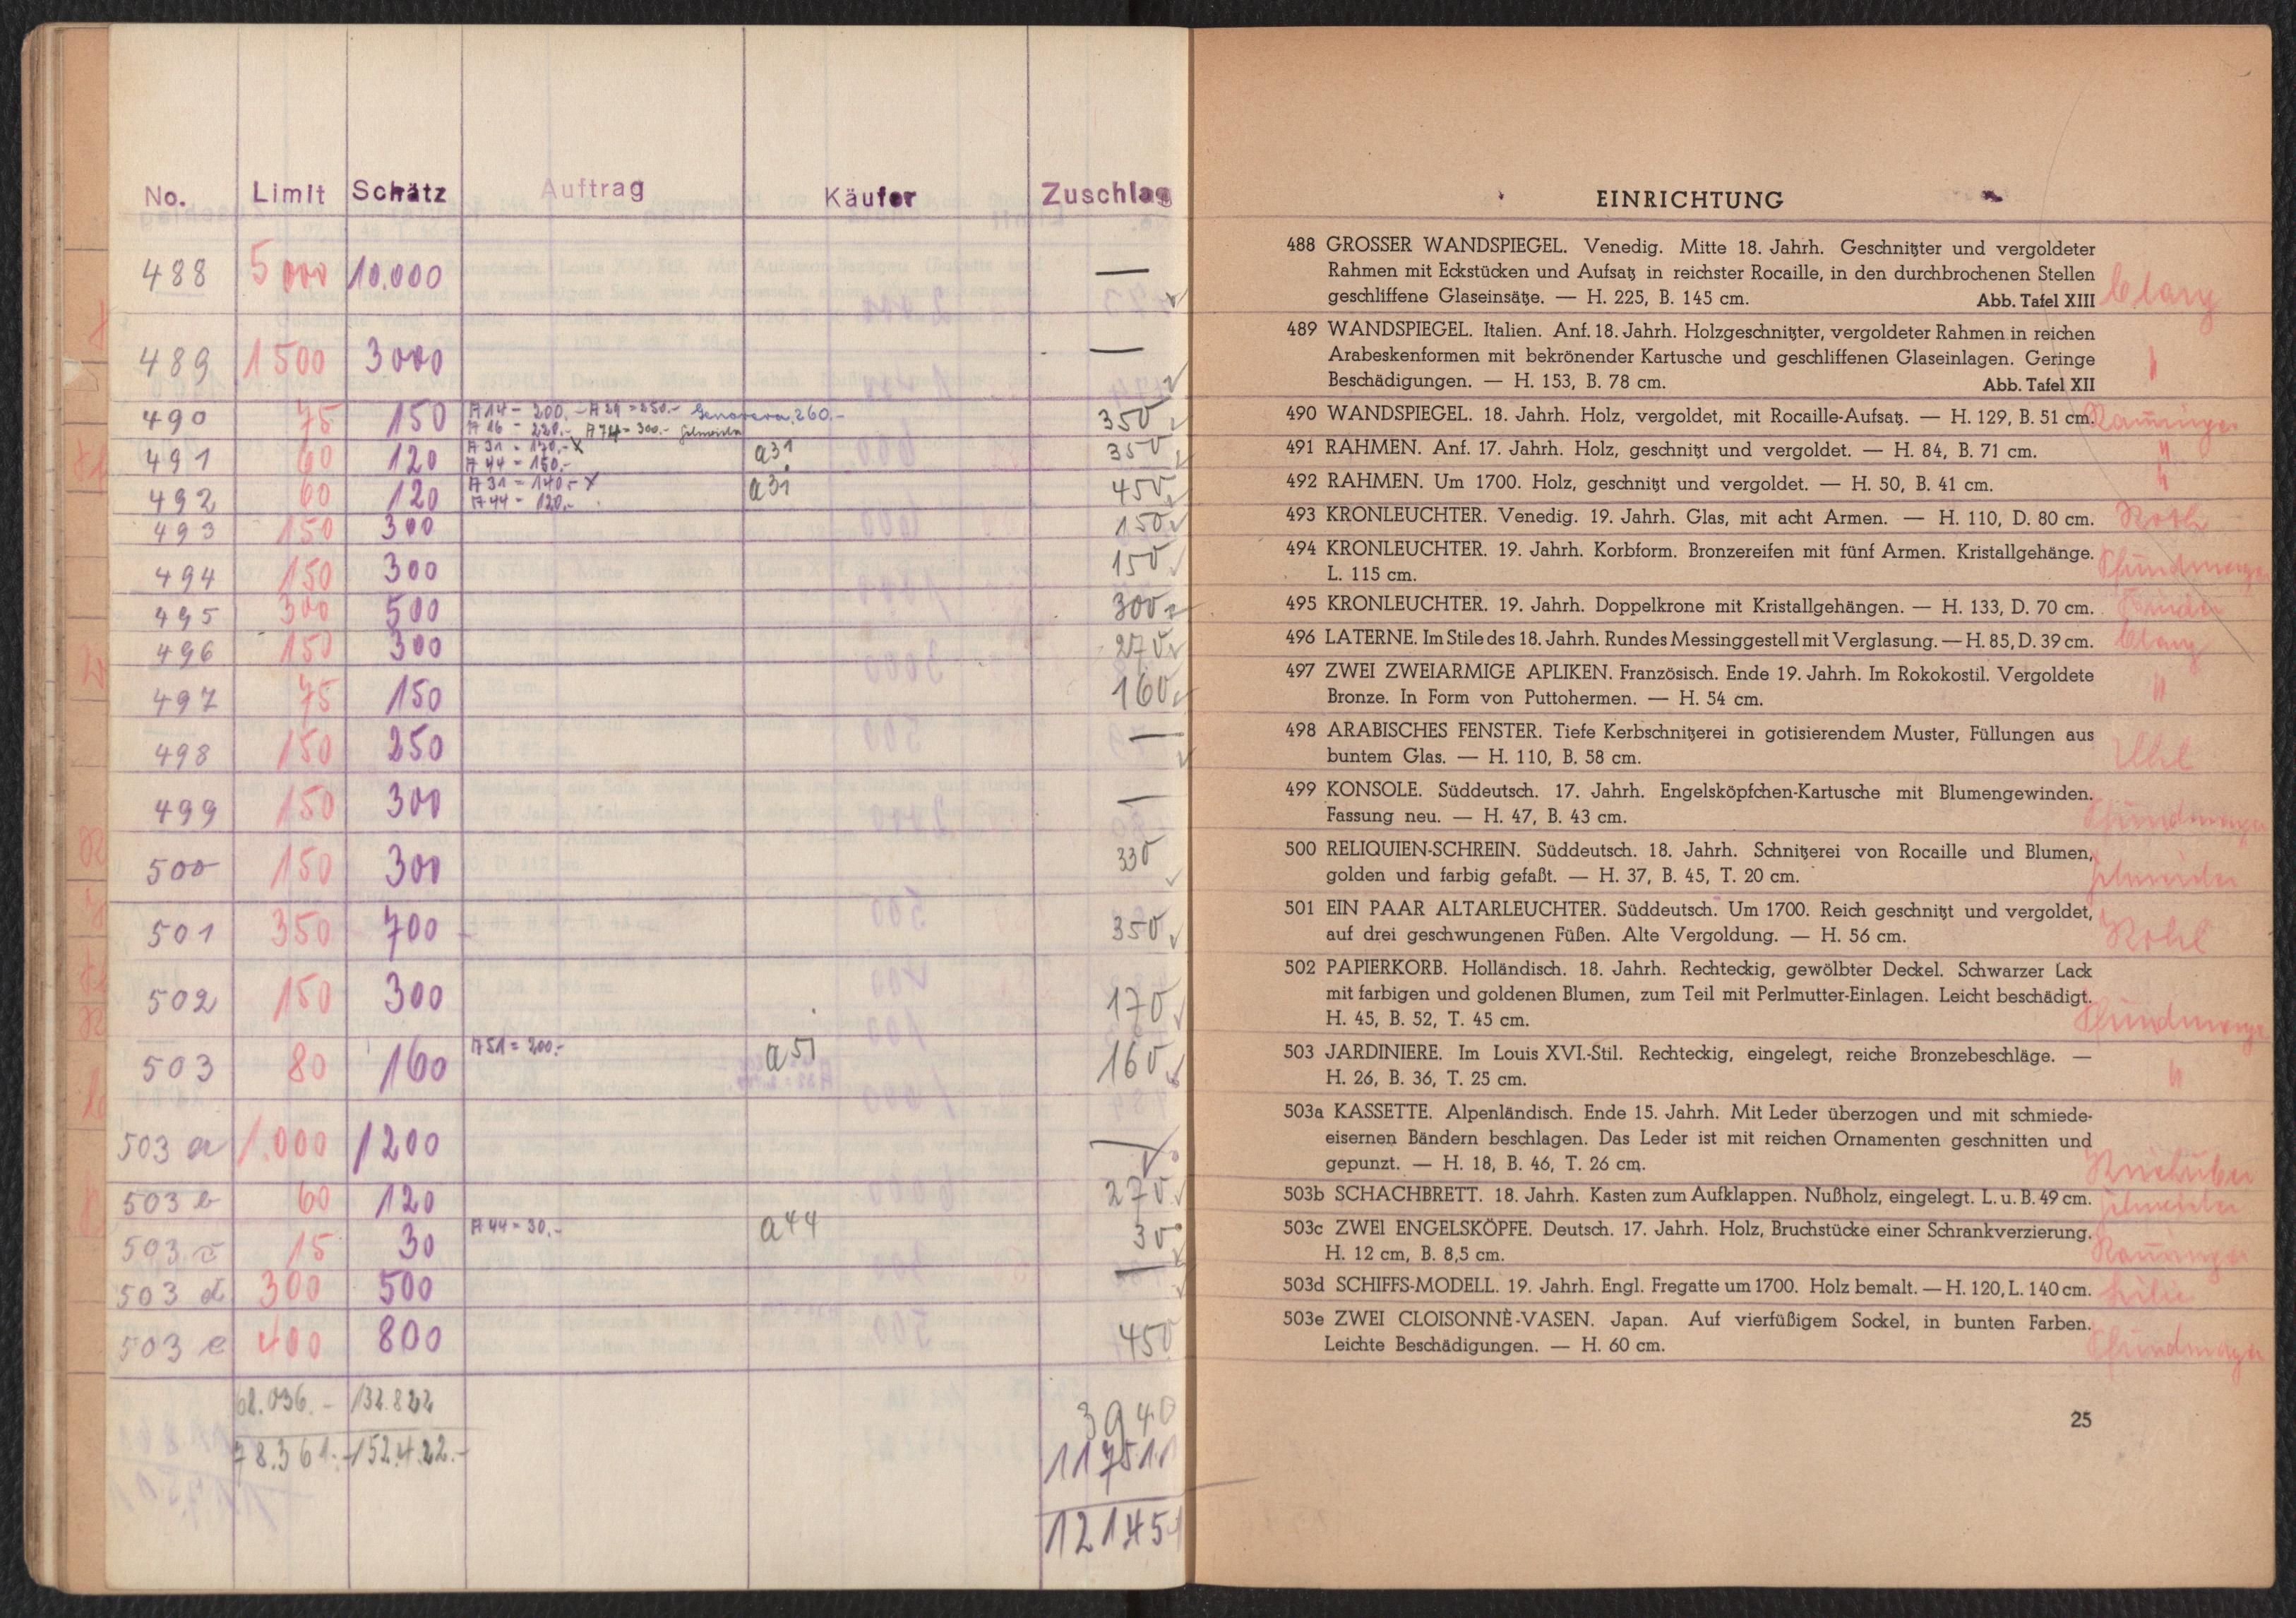 No. Limit Schätz Auftrag Käufer Zuschlag
488 5000 10.000 —
489 1500 3000 —
490 75 150 A 14 - 200.- A 29 = 250.- Genovera 260.- 350
A 16 - 220.- A 74 = 300.-
491 60 120 A 31 - 170.- X a31 350
A 44 - 150.-
492 60 120 A 31 - 140.- X a31 450
A 44 - 120.-
493 150 300 150
494 150 300 150
495 300 500 300
496 150 300 270
497 75 150 160
498 150 250 —
499 150 300 —
500 150 300 330
501 350 700 350
502 150 300 170
503 80 160 A 51 = 200.- a51 160
503 a 1.000 1200 —
503 b 60 120 270
503 c 15 30 A 44 = 30.- a44 30
503 d 300 500 —
503 e 400 800 450
68.036.- 132.822 3940
78.361.- 152.422.- 117511
121451
EINRICHTUNG
488 GROSSER WANDSPIEGEL. Venedig. Mitte 18. Jahrh. Geschnitzter und vergoldeter
Rahmen mit Eckstücken und Aufsatz in reichster Rocaille, in den durchbrochenen Stellen
geschliffene Glaseinsätze. — H. 225, B. 145 cm. Abb. Tafel XIII Clary
489 WANDSPIEGEL. Italien. Anf. 18. Jahrh. Holzgeschnitzter, vergoldeter Rahmen in reichen
Arabeskenformen mit bekrönender Kartusche und geschliffenen Glaseinlagen. Geringe
Beschädigungen. — H. 153, B. 78 cm. Abb. Tafel XII "
490 WANDSPIEGEL. 18. Jahrh. Holz, vergoldet, mit Rocaille-Aufsatz. — H. 129, B. 51 cm.
491 RAHMEN. Anf. 17. Jahrh. Holz, geschnitzt und vergoldet. — H. 84, B. 71 cm. "
492 RAHMEN. Um 1700. Holz, geschnitzt und vergoldet. — H. 50, B. 41 cm. "
493 KRONLEUCHTER. Venedig. 19. Jahrh. Glas, mit acht Armen. — H. 110, D. 80 cm.
494 KRONLEUCHTER. 19. Jahrh. Korbform. Bronzereifen mit fünf Armen. Kristallgehänge.
L. 115 cm.
495 KRONLEUCHTER. 19. Jahrh. Doppelkrone mit Kristallgehängen. — H. 133, D. 70 cm.
496 LATERNE. Im Stile des 18. Jahrh. Rundes Messinggestell mit Verglasung. — H. 85, D. 39 cm. Clary
497 ZWEI ZWEIARMIGE APLIKEN. Französisch. Ende 19. Jahrh. Im Rokokostil. Vergoldete "
Bronze. In Form von Puttohermen. — H. 54 cm.
498 ARABISCHES FENSTER. Tiefe Kerbschnitzerei in gotisierendem Muster, Füllungen aus
buntem Glas. — H. 110, B. 58 cm. Uhl
499 KONSOLE. Süddeutsch. 17. Jahrh. Engelsköpfchen-Kartusche mit Blumengewinden.
Fassung neu. — H. 47, B. 43 cm.
500 RELIQUIEN-SCHREIN. Süddeutsch. 18. Jahrh. Schnitzerei von Rocaille und Blumen,
golden und farbig gefaßt. — H. 37, B. 45, T. 20 cm.
501 EIN PAAR ALTARLEUCHTER. Süddeutsch. Um 1700. Reich geschnitzt und vergoldet,
auf drei geschwungenen Füßen. Alte Vergoldung. — H. 56 cm.
502 PAPIERKORB. Holländisch. 18. Jahrh. Rechteckig, gewölbter Deckel. Schwarzer Lack
mit farbigen und goldenen Blumen, zum Teil mit Perlmutter-Einlagen. Leicht beschädigt.
H. 45, B. 52, T. 45 cm.
503 JARDINIERE. Im Louis XVI.-Stil. Rechteckig, eingelegt, reiche Bronzebeschläge. —
H. 26, B. 36, T. 25 cm. "
503a KASSETTE. Alpenländisch. Ende 15. Jahrh. Mit Leder überzogen und mit schmiede-
eisernen Bändern beschlagen. Das Leder ist mit reichen Ornamenten geschnitten und
gepunzt. — H. 18, B. 46, T. 26 cm.
503b SCHACHBRETT. 18. Jahrh. Kasten zum Aufklappen. Nußholz, eingelegt. L. u. B. 49 cm.
503c ZWEI ENGELSKÖPFE. Deutsch. 17. Jahrh. Holz, Bruchstücke einer Schrankverzierung.
H. 12 cm, B. 8,5 cm.
503d SCHIFFS-MODELL. 19. Jahrh. Engl. Fregatte um 1700. Holz bemalt. — H. 120, L. 140 cm.
503e ZWEI CLOISONNÈ-VASEN. Japan. Auf vierfüßigem Sockel, in bunten Farben.
Leichte Beschädigungen. — H. 60 cm.
25